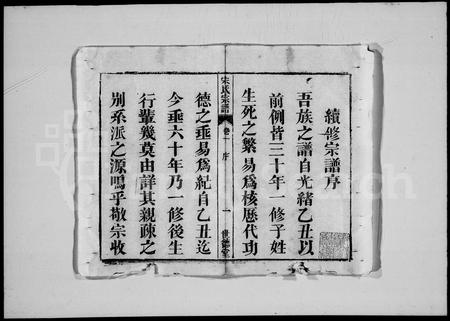 續修宗譜序
吾族之譜自光緒乙丑以
前例皆三十年一修子姓
生死之繁易爲核歷代功
宋氏宗譜 卷一 序 一 世德堂
德之垂易爲紀自乙丑迄
今垂六十年乃一修後生
行輩幾莫由詳其親疎之
別系派之源嗚乎敬宗收